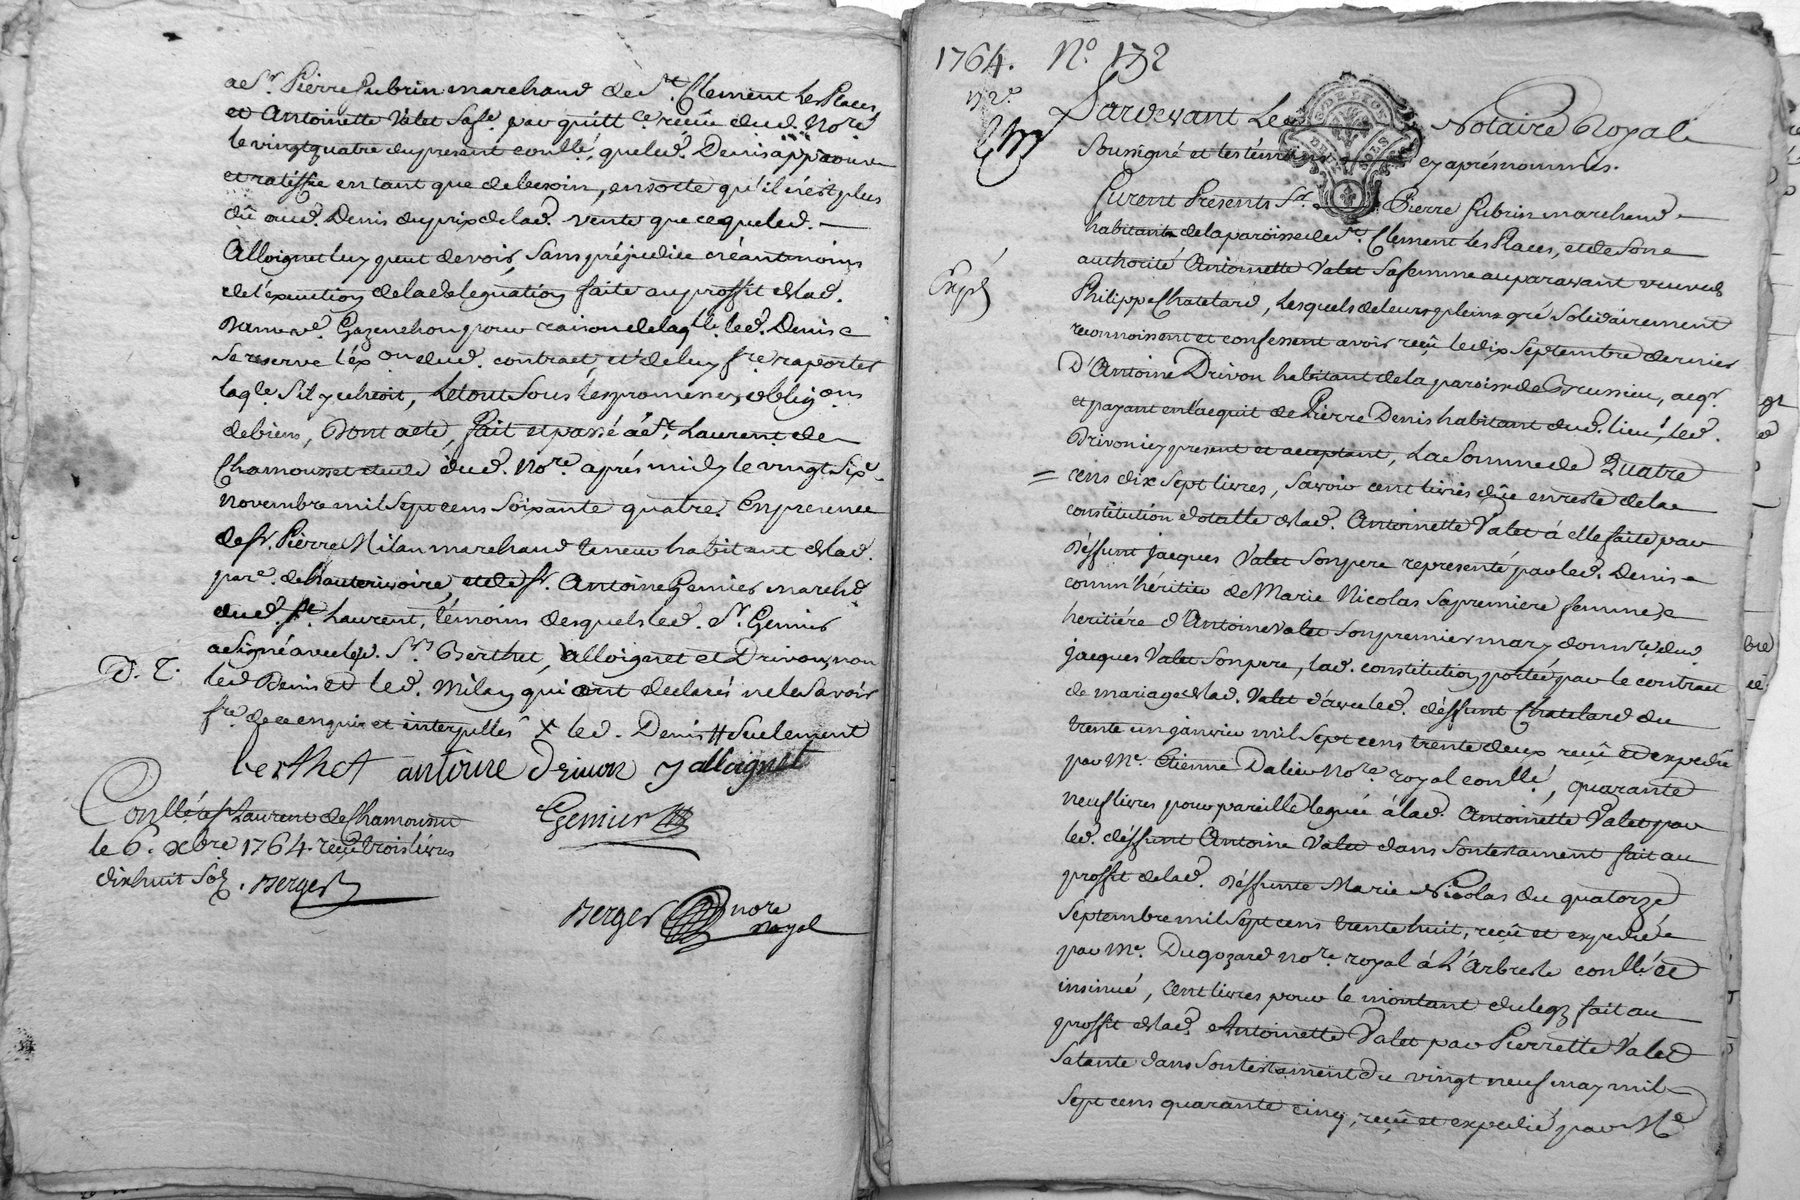 a Sr. Pierre Subrin marchand de St. Clement Les Places,
et Antoinette Valet Sa fe. par quittce. reçüe dud. Nore.
le vingt quatre du present conllé, que led. Denis approuve
et ratiffie en tant que de besoin, en sorte qu'il n'est plus
dû aud. Denis du prix de lad. vente que ce que led.
Alloignet luy peut devoir, Sans préjudice néantmoins
de l'exeution de la deleguation faite au proffit de lad.
Dame ve. Gazanchon pour raison de laqlle led. Denis
Se reserve l'exon. dud. contract, et de luy fre. raporter
laqle S'il y echeoit, Le tout Sous les promesses, obligons
de biens, Dont acte, fait et passé à St. Laurent de
Chamousset etude dud. Nore. aprés midy le vingt Six
novembre mil Sept cens Soixante quatre. En presence
de Sr. Pierre Milan marchand taneur habitant de lad.
pare. de hauterivoire, et de Sr. Antoine Gemier marchd
dud. St. Laurent, témoins desquels led. Sr. Gemier
a Signé avec lesd. Srs Berthet, alloignet et Drivon, non
D. T.
led Denis et led. Milan qui ont declarés ne le Savoir
fre. de ce enquis et interpellés X led. Denis # Seulement
berthet antoine Drivon y alloignet
Conllé a St Laurent de Chamousset
le 6. xbre 1764. reçu trois livres
dixhuit Sols. Berger
Gemier
Berger nore
Royal
1764. No. 172
172e.
Pardevant Le Notaire Royal
DE LYON
DEUX SOLS
Soussigné et les témoins cy aprés nommés.
Furent Présents Sr. Pierre Subrin marchand
habitant de la paroisse de St. Clement les Places, et de Son
authorité Antoinette Valet Sa femme auparavant veuve de
Expé
Philippe Chatelard, Lesquels de leurs pleins gré Solidairement
reconnoissent et confessent avoir reçû le dix Septembre dernier
D'Antoine Drivon habitant de la paroisse de Brussieu, acqr.
et payant en l'acquit de Pierre Denis habitant dud. lieu, led.
Drivon icy present et acceptant, La Somme de Quatre
= cens dix Sept livres, Savoir cent livres dûe en reste de la
constitution dotalle de lad. Antoinette Valet à elle faite par
Déffunt jacques Valet Son pere representé par led. Denis
comm'héritier de Marie Nicolas Sa premiere femme,
heritiére d'Antoine Valet Son premier mary donnre. dud.
jacques Valet Son pere, lad. constitution portée par le contract
de mariage de lad. Valet d'avec led. déffunt Chatelard du
trente un janvier mil Sept cens trente deux reçû et expedié
par Me. Etienne Dalier Nore. royal conllé, quarante
neuf livres pour pareille leguée à lad. Antoinette Valet par
led. déffunt Antoine Valet dans Son testament fait au
proffit de lad. Déffunte Marie Nicolas du quatorze
Septembre mil Sept cens trente huit, reçû et expedié
par Me. Dugozard nore. royal à L'Arbresle conllé et
insinué, cent livres pour le montant du legs fait au
proffit de lad. Antoinette Valet par Pierrette Valet
Sa tante dans Son testament du vingt neuf may mil
Sept cens quarante cinq, reçû et expedié par Me